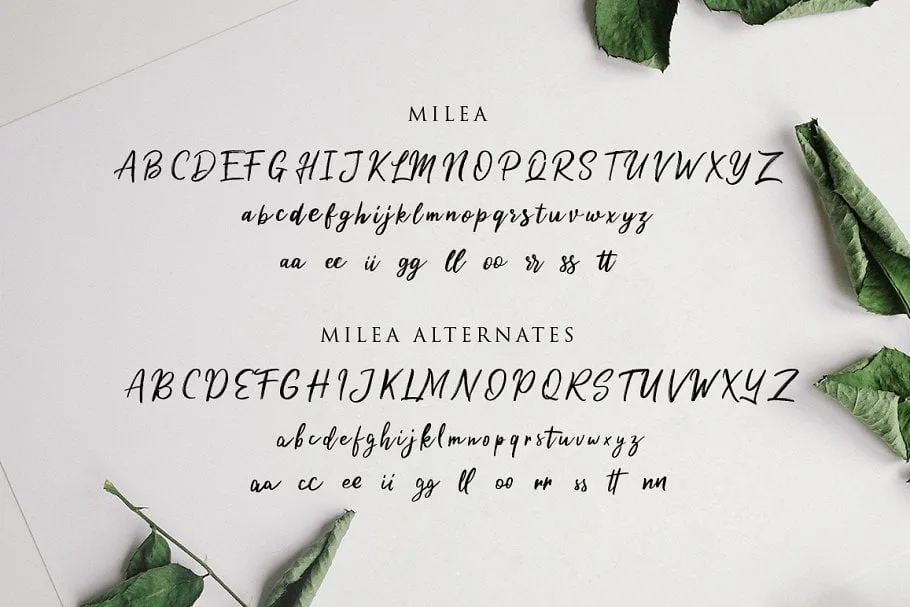 MILEA
ABCDEFGHIJKLMNOPQRSTUVWXYZ
abcdefghijklmnopqrstuvwxyz
aa ee ii gg ll oo rr ss tt
MILEA ALTERNATES
ABCDEFGHIJKLMNOPQRSTUVWXYZ
abcdefghijklmnopqrstuvwxyz
aa cc ee ii gg ll oo rr ss tt nn